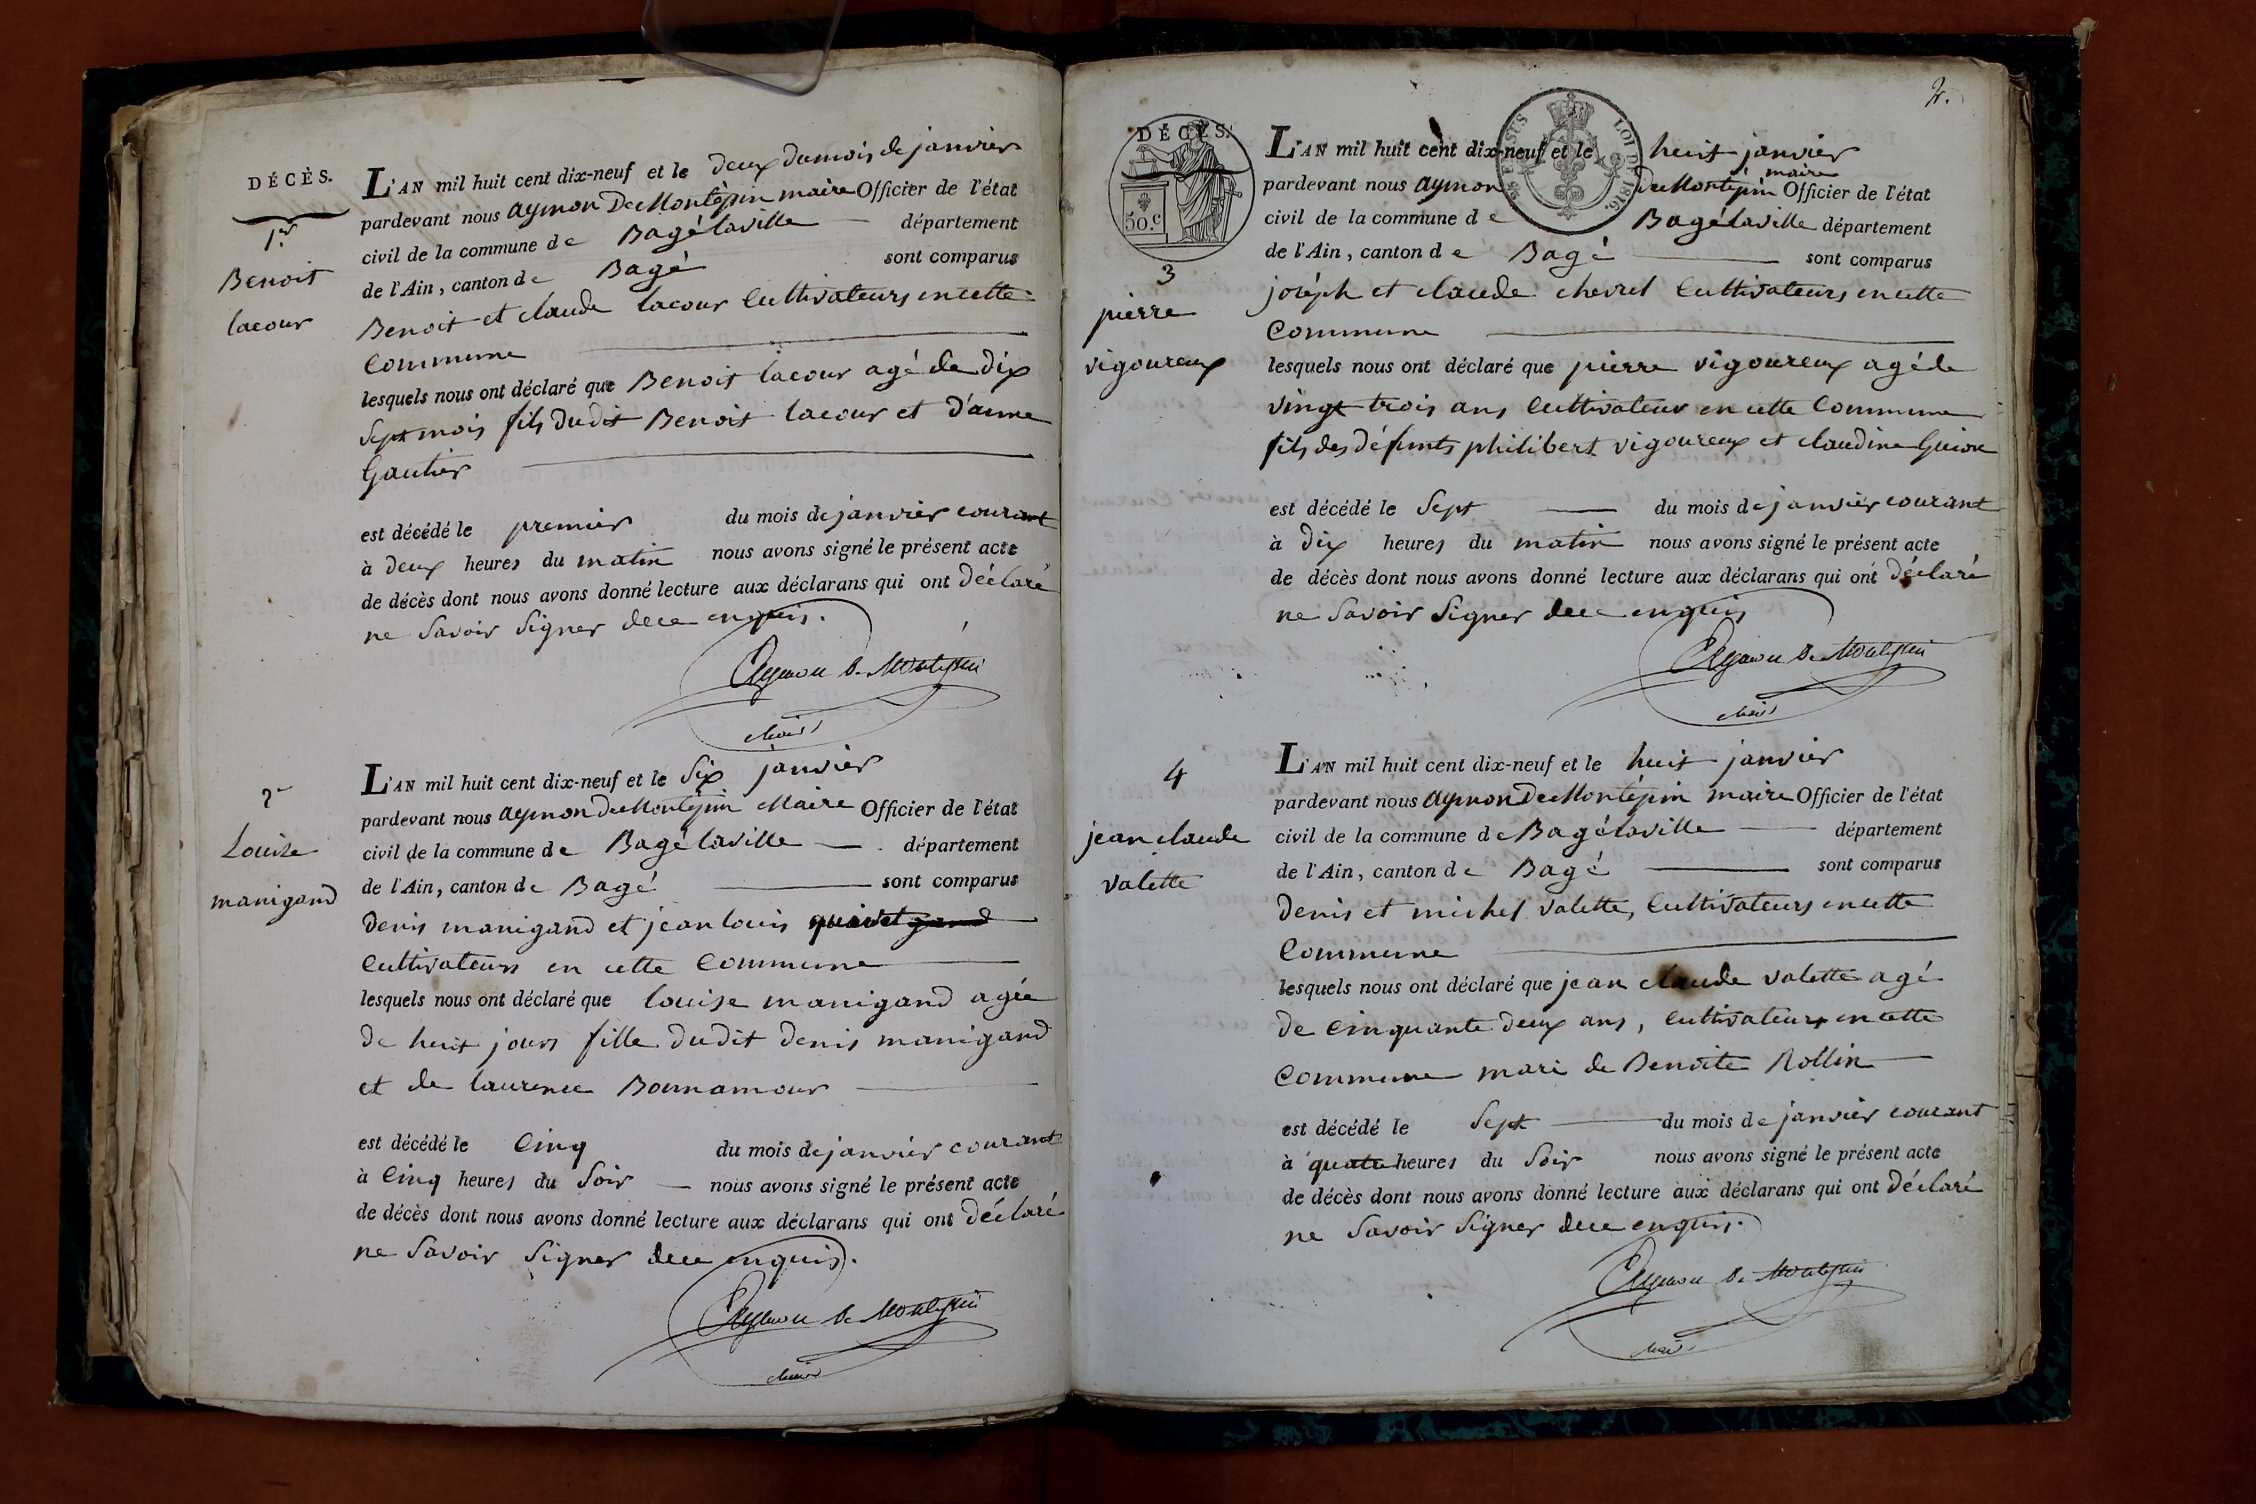 DÉCÈS.
1.er
Benoit
lacour
L'AN mil huit cent dix-neuf et le deux du mois de janvier
pardevant nous aymon De Montépin maire Officier de l'état
civil de la commune de Bagélaville département
de l'Ain, canton de Bagé sont comparus
Benoit et claude lacour Cultivateurs en cette
Commune
lesquels nous ont déclaré que Benoit lacour agé de dix
Sept mois fils dudit Benoit lacour et d'anne
Gautier
est décédé le premier du mois de janvier courant
à deux heures du matin nous avons signé le présent acte
de décès dont nous avons donné lecture aux déclarans qui ont déclaré
ne Savoir Signer de ce enquis.
Aymon De Montépin
Maire
2
Louise
manigand
L'AN mil huit cent dix-neuf et le Six janvier
pardevant nous aymon De Montépin Maire Officier de l'état
civil de la commune de Bagélaville département
de l'Ain, canton de Bagé sont comparus
Denis manigand et jean louis
Cultivateurs en cette Commune
lesquels nous ont déclaré que louise manigand agée
de huit jours fille dudit denis manigand
et de laurence Bonnamour
est décédé le Cinq du mois de janvier courant
à Cinq heures du Soir nous avons signé le présent acte
de décès dont nous avons donné lecture aux déclarans qui ont déclaré
ne Savoir Signer de ce enquis.
Aymon De Montépin
Maire
2.
DÉCÈS.
50.c
LOI DE 1816.
3
pierre
vigoureux
L'AN mil huit cent dix-neuf et le huit janvier
pardevant nous aymon De Montépin maire Officier de l'état
civil de la commune de Bagélaville département
de l'Ain, canton de Bagé sont comparus
joséph et claude chevrel Cultivateurs en cette
Commune
lesquels nous ont déclaré que pierre vigoureux agé de
vingt trois ans Cultivateur en cette Commune
fils des défunts philibert vigoureux et claudine Guion
est décédé le Sept du mois de janvier courant
à dix heures du matin nous avons signé le présent acte
de décès dont nous avons donné lecture aux déclarans qui ont déclaré
ne Savoir Signer de ce enquis
Aymon De Montépin
Maire
4
jean claude
valette
L'AN mil huit cent dix-neuf et le huit janvier
pardevant nous aymon De Montépin maire Officier de l'état
civil de la commune de Bagélaville département
de l'Ain, canton de Bagé sont comparus
Denis et michel valette, Cultivateurs en cette
Commune
lesquels nous ont déclaré que jean claude valette agé
de Cinquante deux ans, Cultivateur en cette
Commune mari de Benoite Rollin
est décédé le Sept du mois de janvier courant
à quatre heures du Soir nous avons signé le présent acte
de décès dont nous avons donné lecture aux déclarans qui ont déclaré
ne Savoir Signer de ce enquis.
Aymon De Montépin
Maire